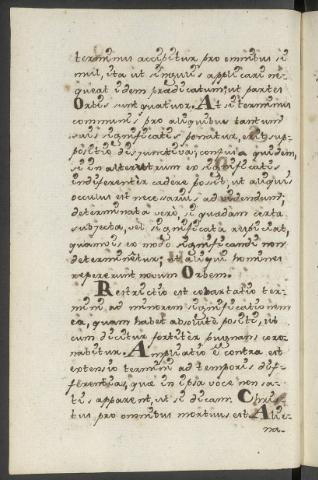 terminus accipitur pro omnibus si
mul, ita ut singulis applicari ne
queat idem prædicatum; ut partes
Orbis sunt quatuor. At si terminus
communis pro aliquibus tantum
suis significatis ponatur, erit sup-
positio disjunctiva; confusa quidem,
si in alterutrum ex significatis
indifferenter cadere possit, ut aliquis
oculus est necessarius ad videndum,
determinata vero, si quædam certa
subjecta, vel significata respiciat,
quamvis ex modo significandi non
determinetur; ut aliqui homines
repererunt novum Orbem.
Restrictio est coarctatio ter-
mini ad minorem significationem
ea, quam habet absolute positus, ut
cum dicitur fortiter pugnans coro
nabitur. Ampliatio e contra est
extensio termini ad temporis diff-
ferentias, quæ in ipsa voce non sa-
tis apparent, ut si dicam: Chris-
tus pro omnibus mortuus est. Alie-
na-